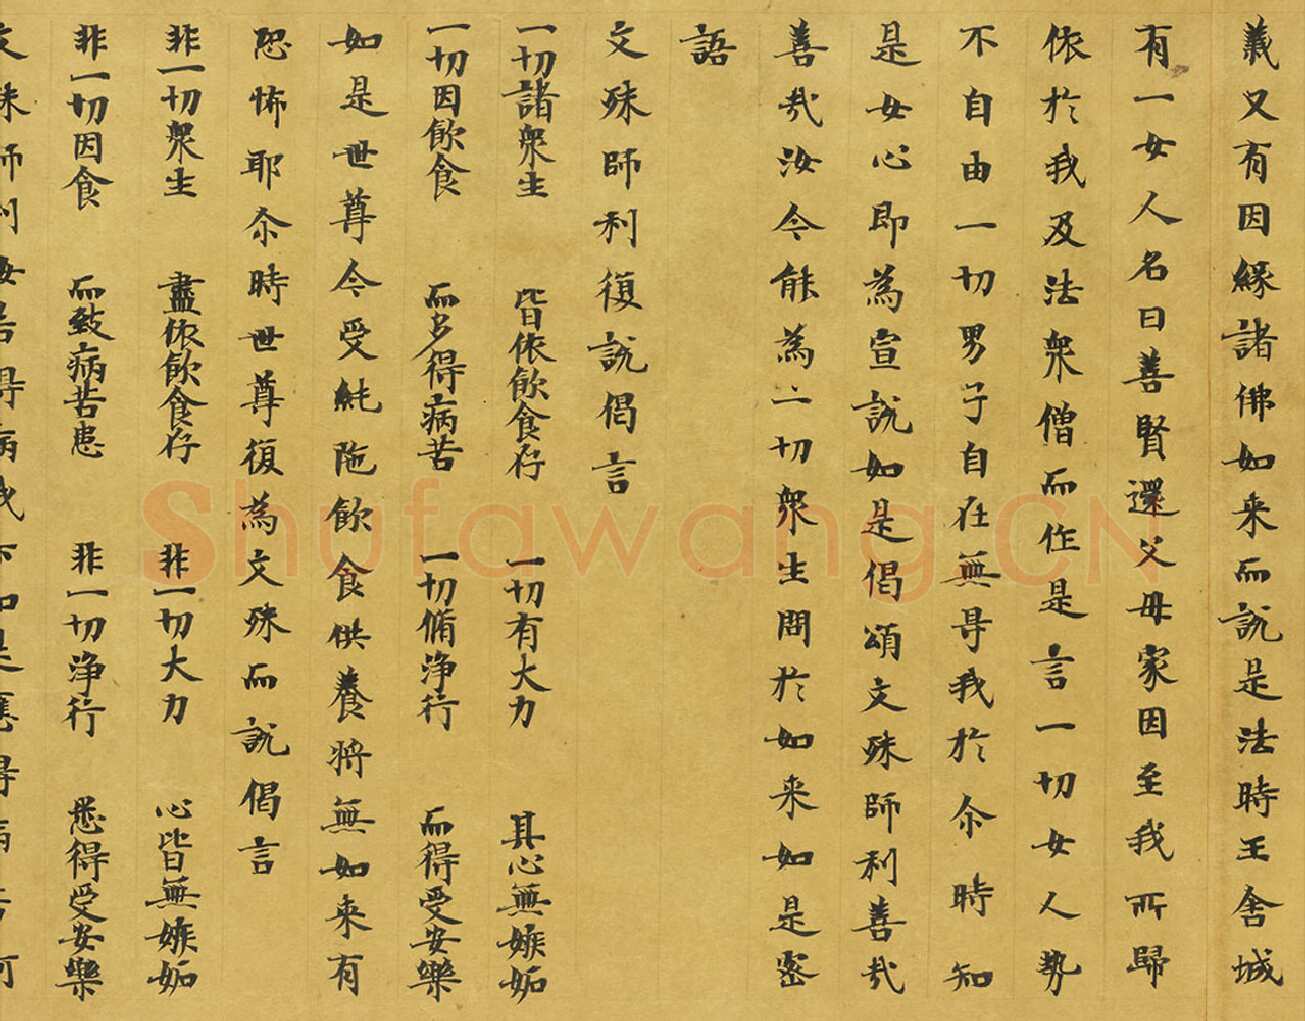 義又有因緣諸佛如来而說是法時王舍城
有一女人名曰善賢還父母家因至我所歸
依於我及法衆僧而作是言一切女人勢
不自由一切男子自在無㝵我於尒時知
是女心即為宣說如是偈頌文殊師利善㢤
善㢤汝今能為一切衆生問於如来如是密
語
文殊師利復說偈言
一切諸衆生 皆依飲食存 一切有大力 其心無嫉妬
一切因飲食 而多得病苦 一切脩淨行 而得受安樂
如是世尊今受純陁飲食供養將無如来有
恐怖耶尒時世尊復為文殊而說偈言
非一切衆生 盡依飲食存 非一切大力 心皆無嫉妬
非一切因食 而致病苦患 非一切淨行 悉得受安樂
文殊師利汝若得病我
Shufawang.CN